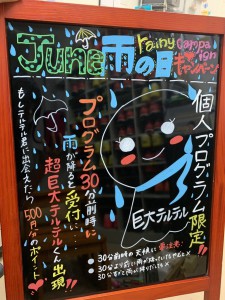 June 雨の日 rainy campaign キャンペーン
個人プログラム限定!!
巨大テルテル
プログラム30分前時に
雨が降ると受付に…
超巨大テルテルくん出現!!
もしテルテル君に出会えたら
500円分のポイント
注意
●30分前時の天候
●30分より前に雨が
●30分すぎて雨が降りだしても×